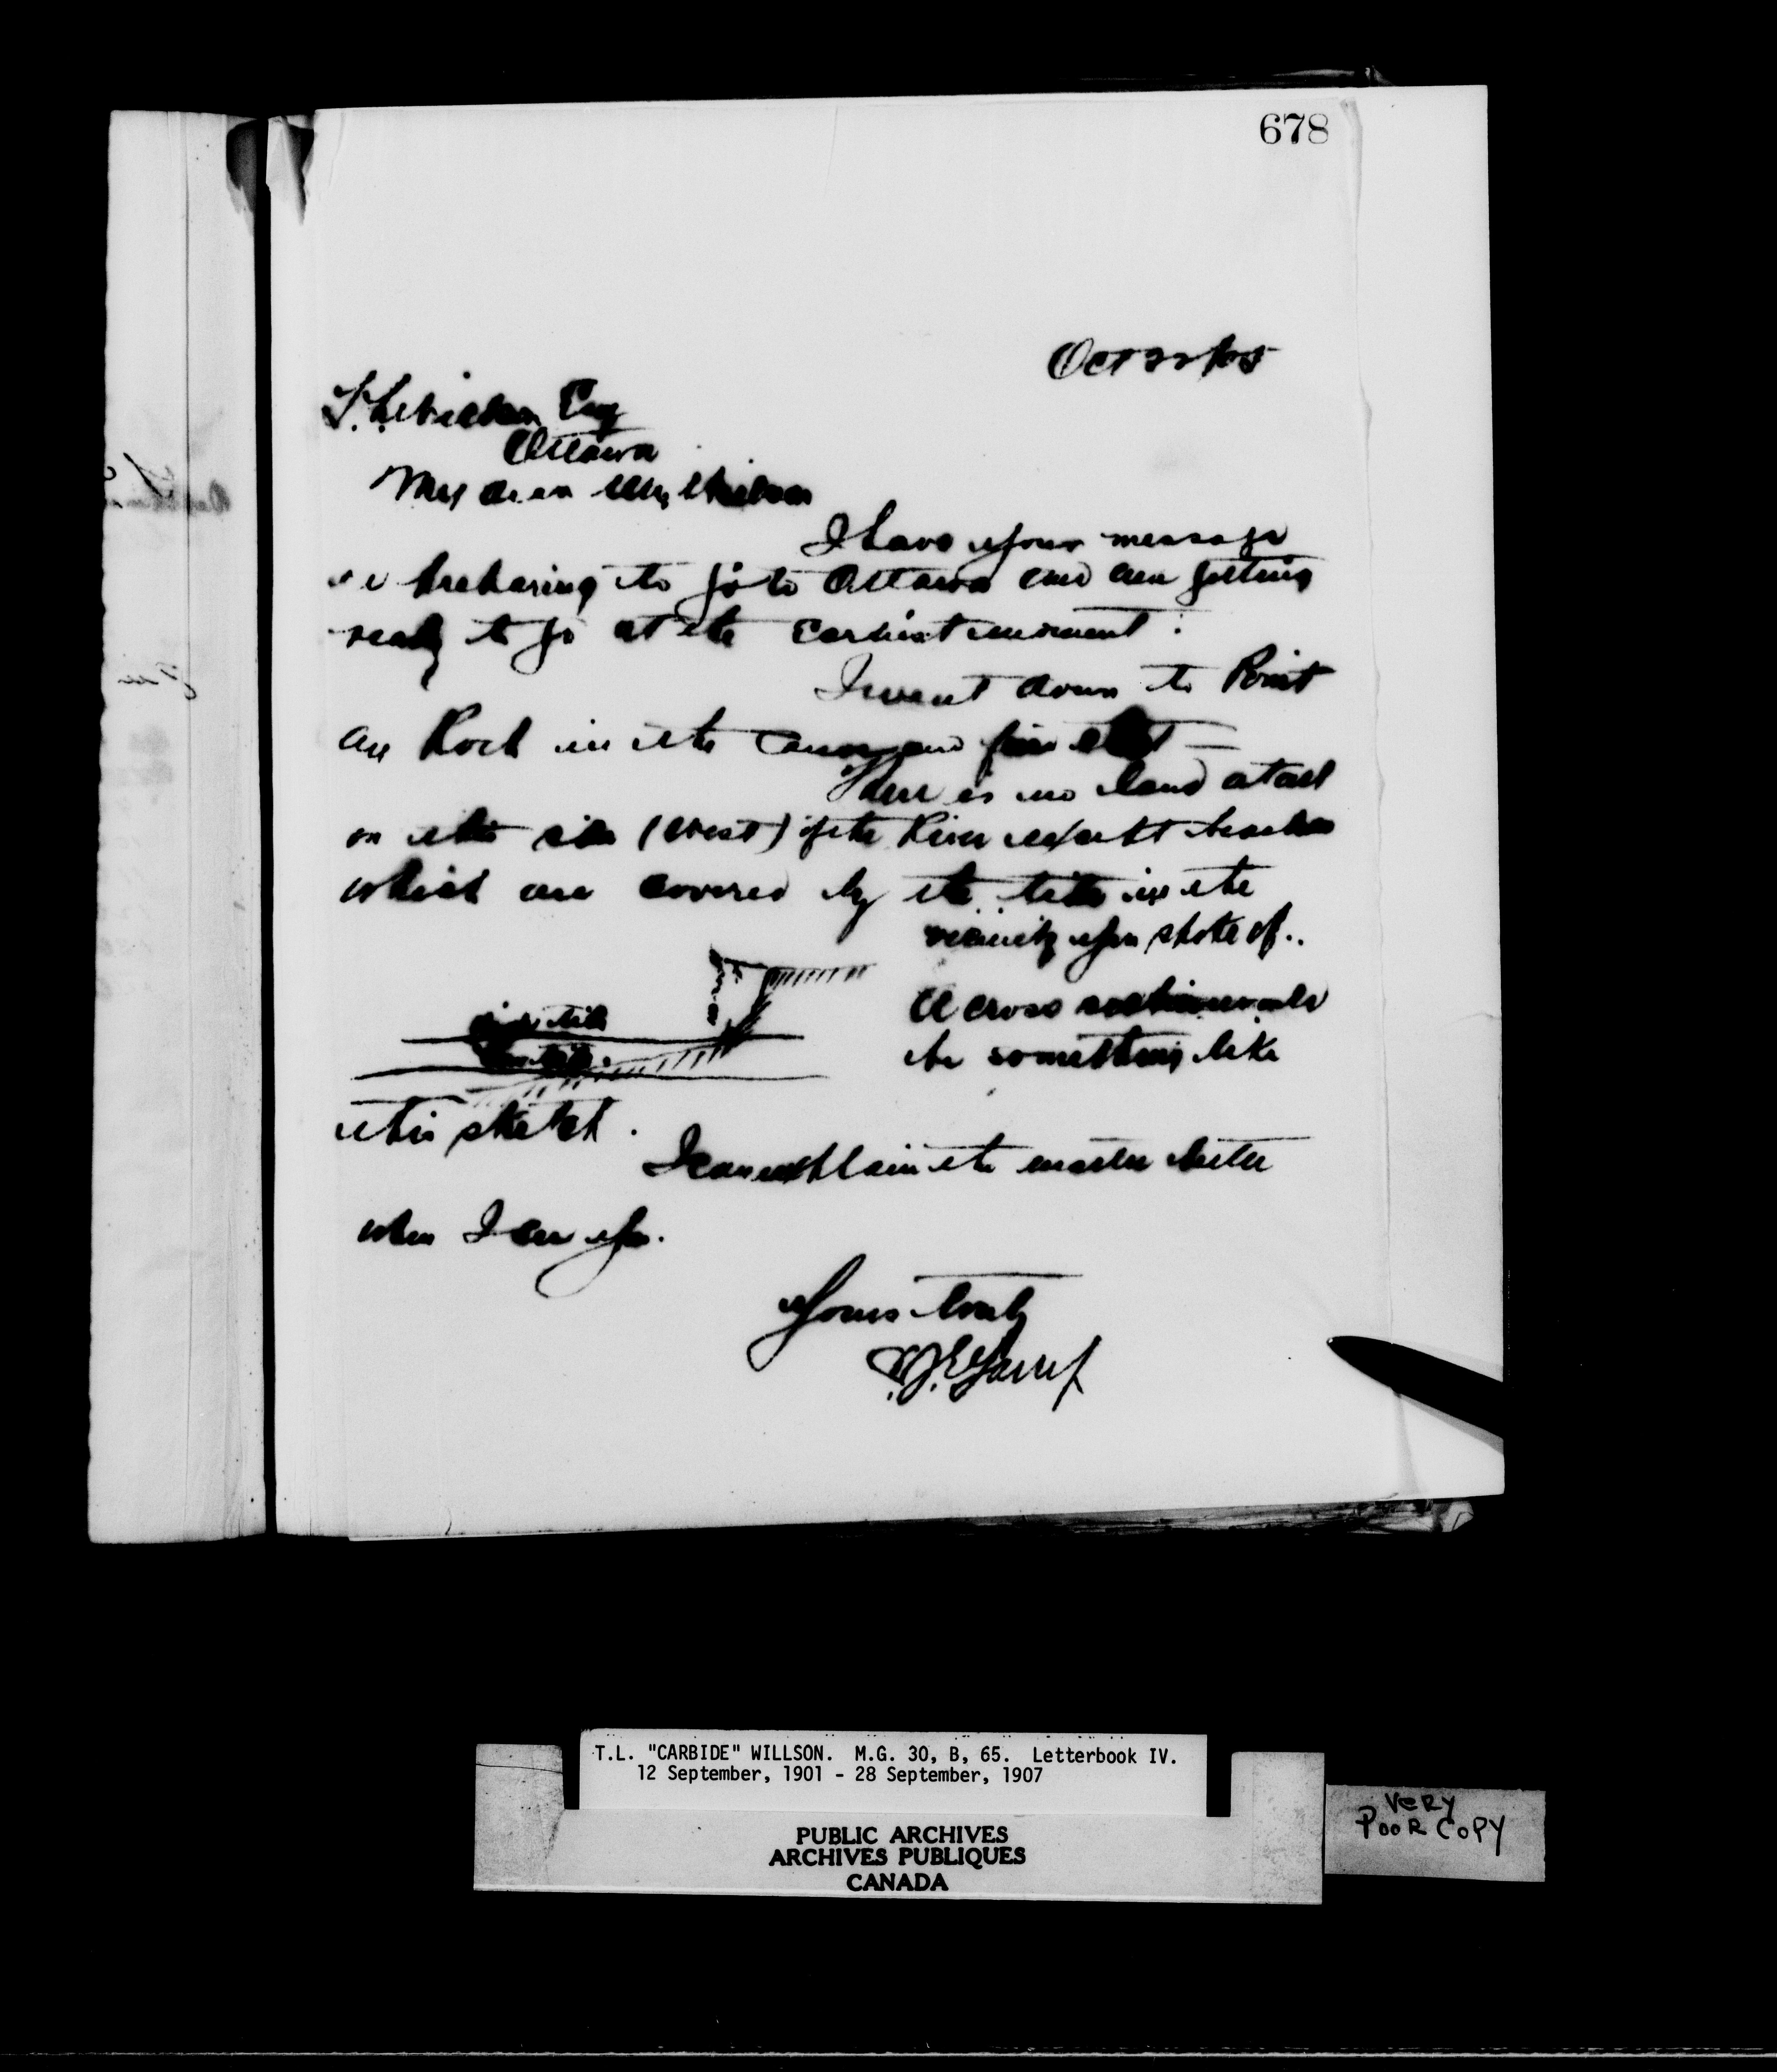 678
Oct 22 / 05
T. L. Willson Esq
Ottawa
My dear Mr. Willson
I have your message
re preparing to go to Ottawa and am getting
ready to go at the earliest moment.
I went down to Point
au Rock in the canoe and find that
There is no land at all
on this side (West) of the River except beaches
which are covered by the tide in the
vicinity you spoke of..
A cross section would
be something like
high tide
low tide.
this sketch.
I can explain the matter better
when I see you.
Yours truly
T.L. "CARBIDE" WILLSON. M.G. 30, B, 65. Letterbook IV.
12 September, 1901 - 28 September, 1907
PUBLIC ARCHIVES
ARCHIVES PUBLIQUES
CANADA
VERY
POOR COPY